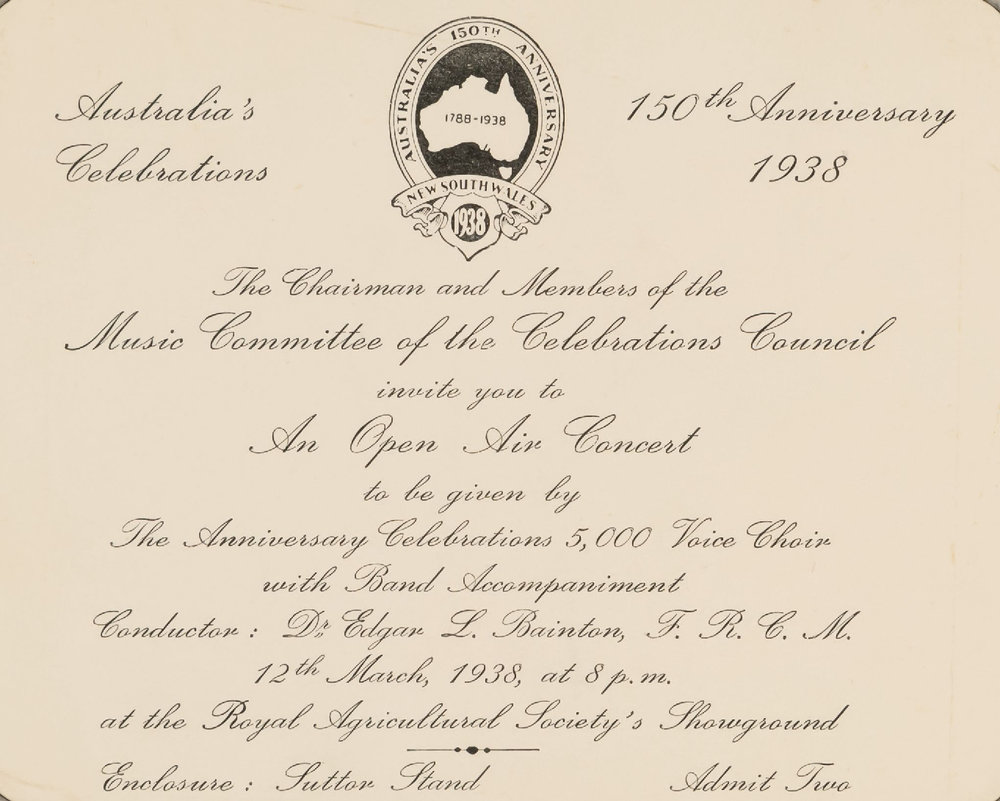 Australia's
Celebrations
AUSTRALIA'S 150TH ANNIVERSARY
1788-1938
NEW SOUTH WALES
1938
150th Anniversary
1938
The Chairman and Members of the
Music Committee of the Celebrations Council
invite you to
An Open Air Concert
to be given by
The Anniversary Celebrations 5,000 Voice Choir
with Band Accompaniment
Conductor : Dr. Edgar L. Bainton, F. R. C. M.
12th March, 1938, at 8 p.m.
at the Royal Agricultural Society's Showground
Enclosure : Suttor Stand Admit Two